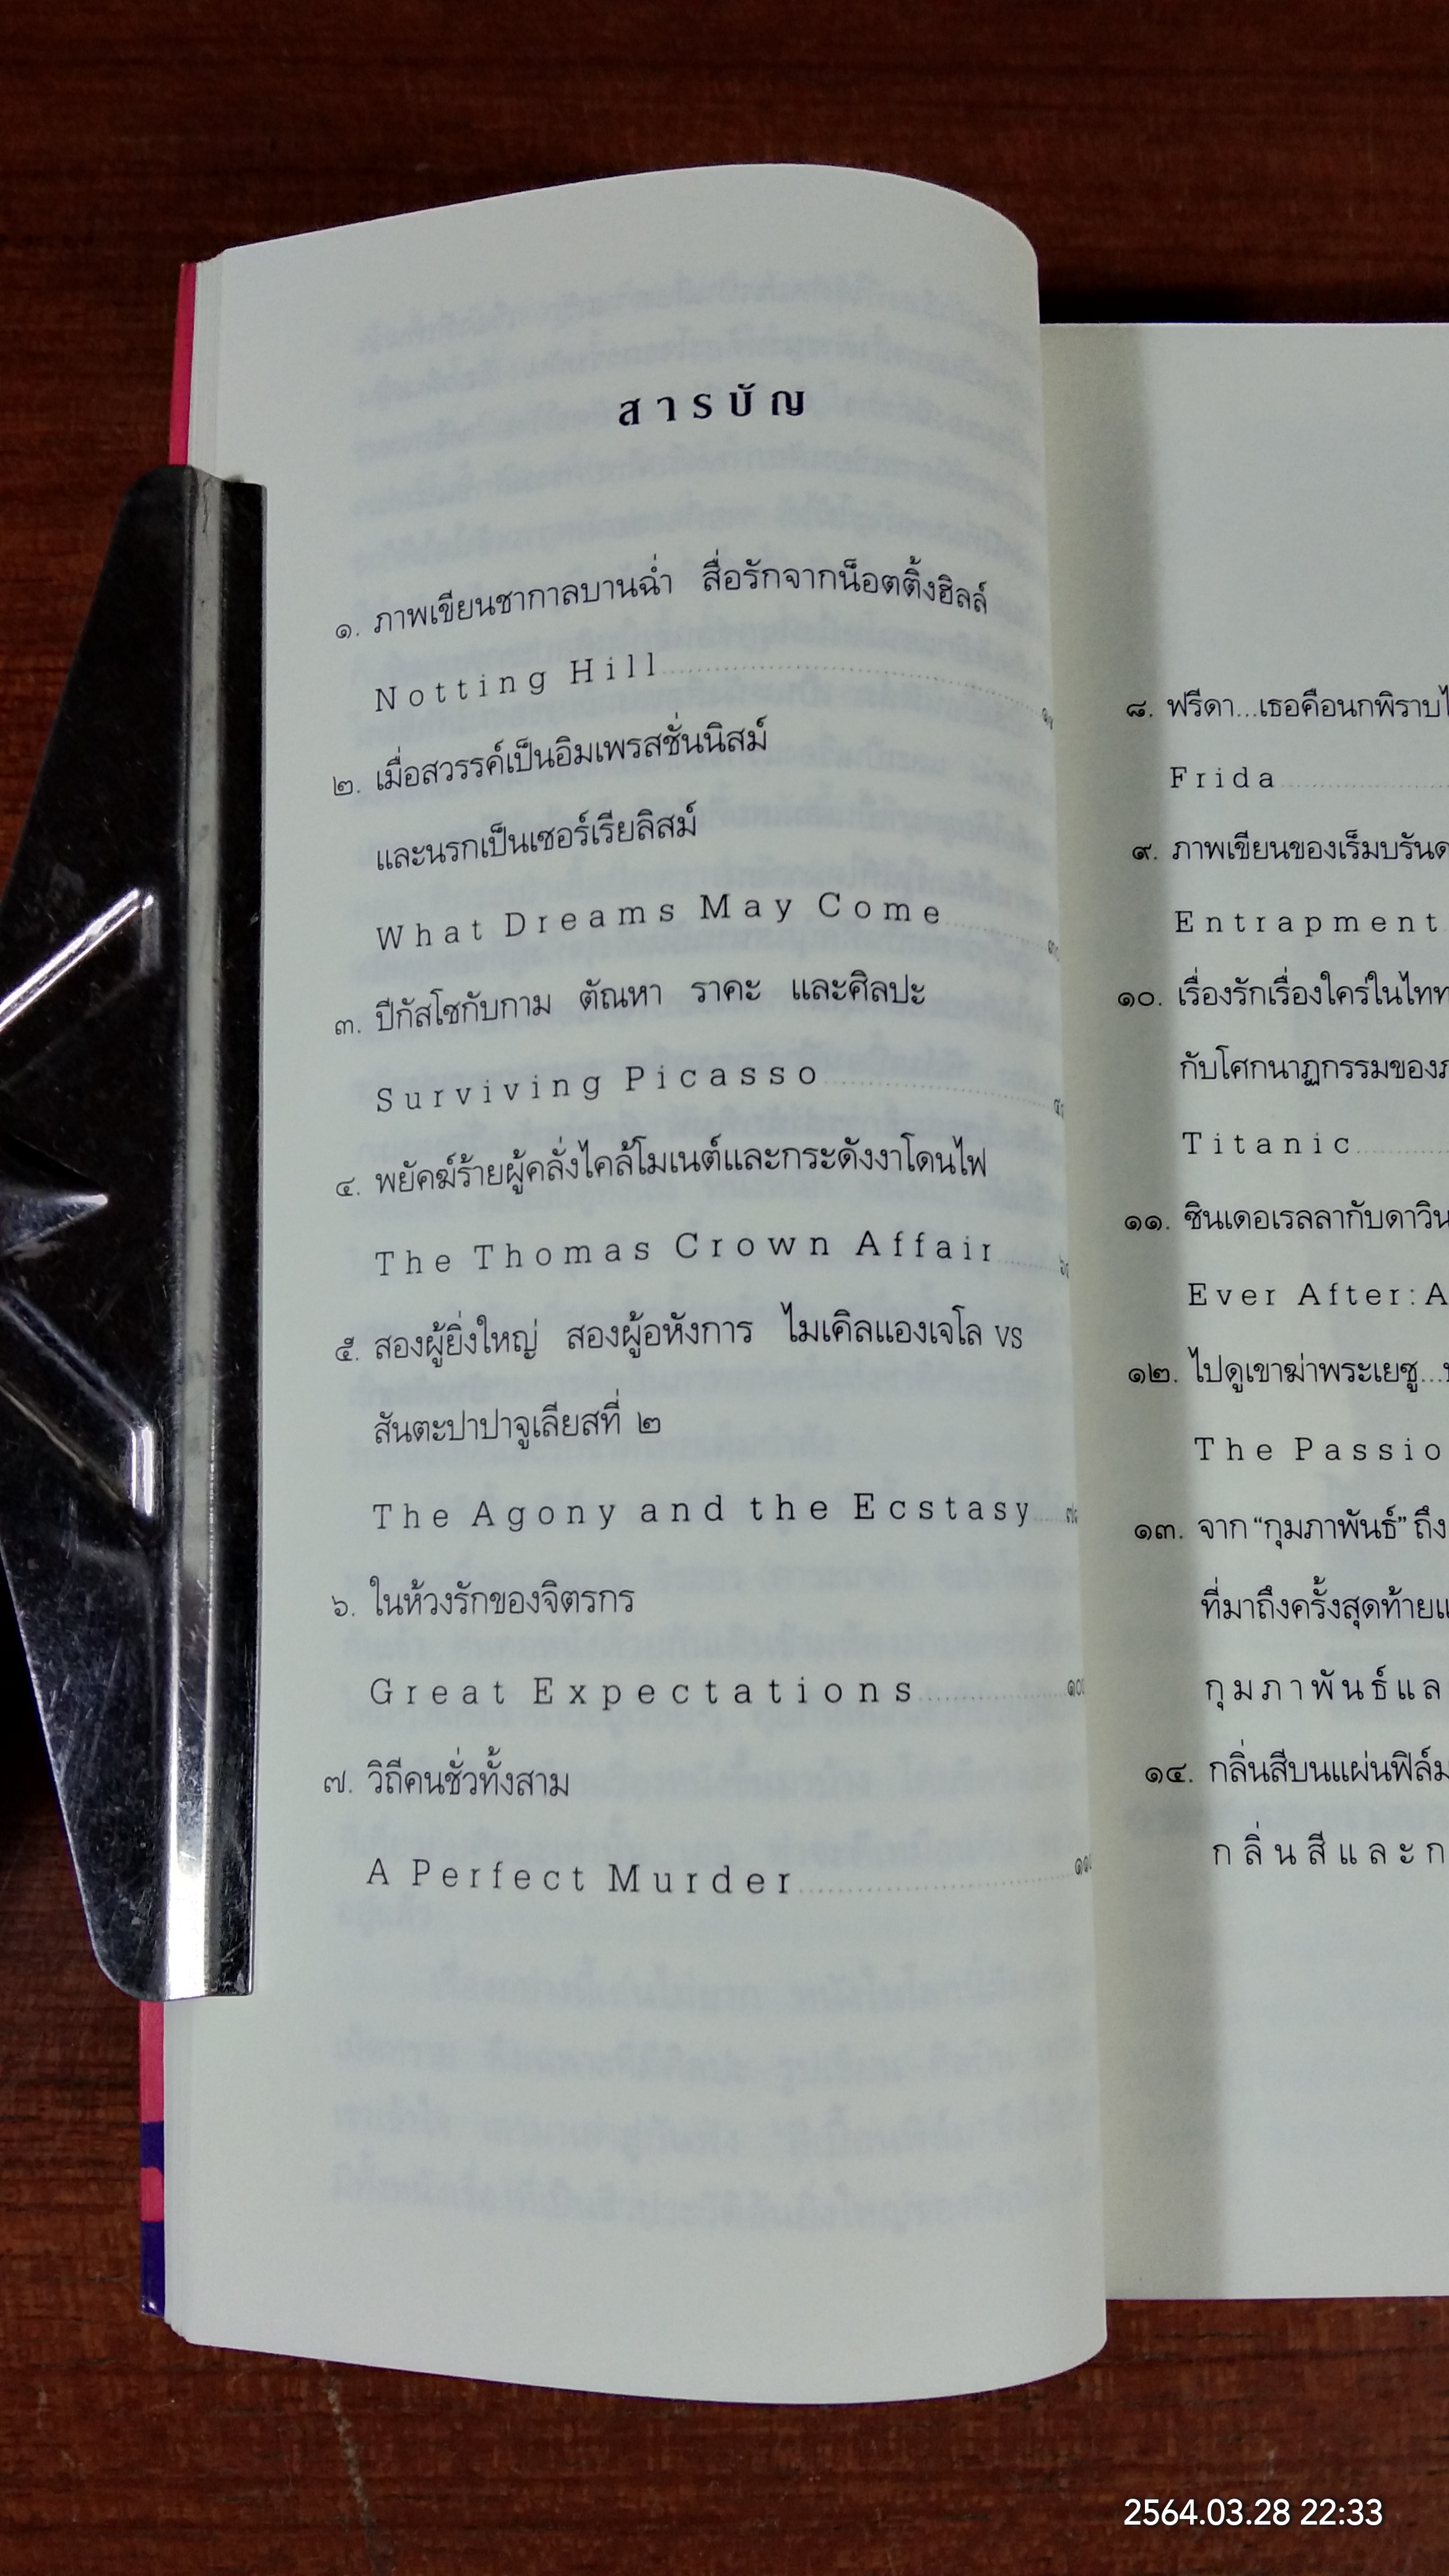 สารบัญ
๑. ภาพเขียนชากาลบานฉ่ำ สื่อรักจากน็อตติ้งฮิลล์
Notting Hill
๒. เมื่อสวรรค์เป็นอิมเพรสชั่นนิสม์
และนรกเป็นเซอร์เรียลิสม์
What Dreams May Come
๓. ปีกัสโซกับกาม ตัณหา ราคะ และศิลปะ
Surviving Picasso
๔. พยัคฆ์ร้ายผู้คลั่งไคล้โมเนต์และกระดังงาโดนไฟ
The Thomas Crown Affair
๕. สองผู้ยิ่งใหญ่ สองผู้อหังการ ไมเคิลแองเจโล vs
สันตะปาปาจูเลียสที่ ๒
The Agony and the Ecstasy
๖. ในห้วงรักของจิตรกร
Great Expectations
๗. วิถีคนชั่วทั้งสาม
A Perfect Murder
๘. ฟรีดา...เธอคือนกพิราบ
Frida
๙. ภาพเขียนของเร็มบรันด
Entrapment
๑๐. เรื่องรักเรื่องใคร่ในไทท
กับโศกนาฏกรรมของ
Titanic
๑๑. ซินเดอเรลลากับดาวิน
Ever After: A
๑๒. ไปดูเขาฆ่าพระเยซู...
The Passio
๑๓. จาก “กุมภาพันธ์” ถึง
ที่มาถึงครั้งสุดท้ายแ
กุมภาพันธ์แล
๑๔. กลิ่นสีบนแผ่นฟิล์ม
กลิ่นสีและก
2564.03.28 22:33